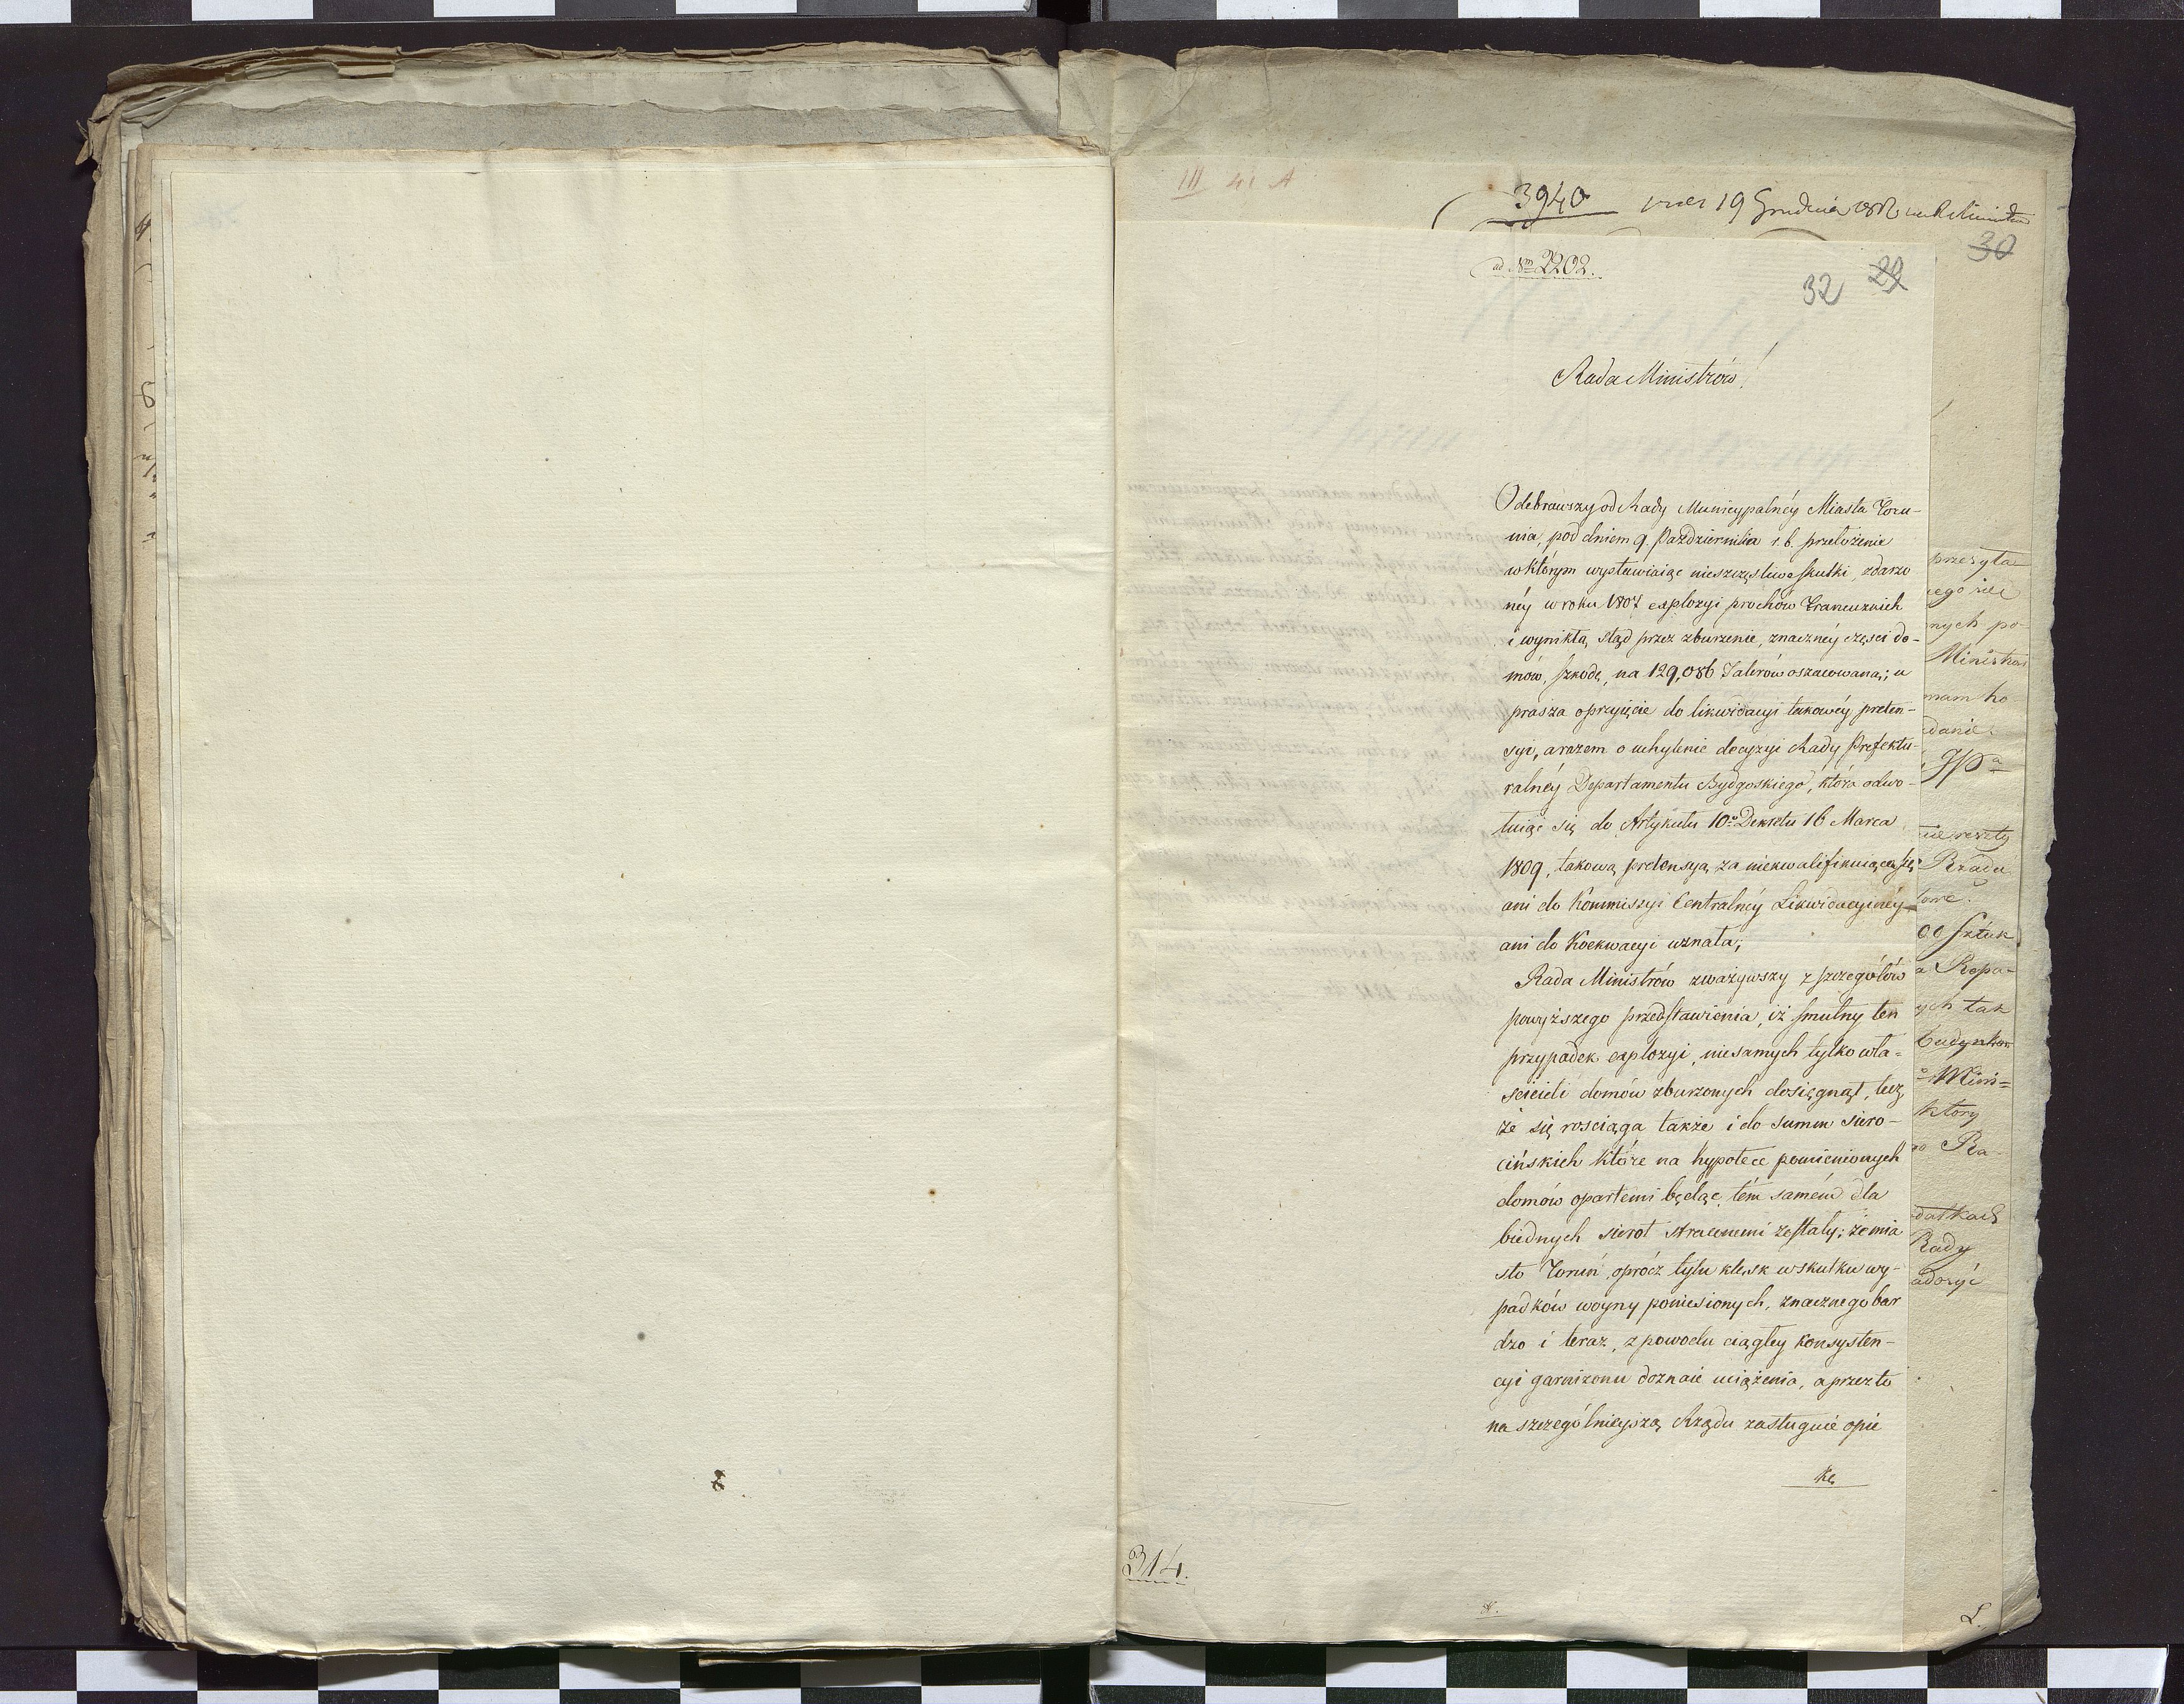 III 41 A
3940 19 Grudnia
30
ad Nm 2202.
32 29
Rada Ministrów!
Odebrawszy od Rady Municypalnéy Miasta Toru-
nia, pod dniem 9. Października r. b. przełożenie
w którym wystawiaiąc nieszczęśliwe skutki, zdarzo
néy w roku 1807 explozyi prochów Francuzkich
i wynikłą stąd przez zburzenie, znacznéy części do-
mów, szkodę, na 129,086 Talerów oszacowaną; u
prasza o przyięcie do likwidacyi takowéy preten-
syi, a razem o uchylenie decyzyi Rady Prefektu-
ralnéy Departamentu Bydgoskiego, która odwo-
łuiąc się do Artykułu 10o Dekretu 16 Marca
1809, takową pretensyą za niekwalifikuiącą się
ani do Kommiszyi Centralnéy Likwidacyinéy
ani do Koekwacyi uznała;
Rada Ministrów zważywszy z szczegółów
powyższego przedstawienia, iż smutny ten
przypadek explozyi, niesamych tylko wła=
ścicieli domów zburzonych dosięgnął, lecz
że się rosciąga także i do summ siero-
cińskich które na hypotece pomienionych
domów opartemi będąc, tém samém dla
biednych sierot straconemi zostały; że mia
sto Toruń, oprócz tylu klęsk w skutku wy-
padków woyny poniesionych, znacznego bar
dzo i teraz, z powodu ciągłey konsysten-
cyi garnizonu doznaie uciążenia, a przez to
na szczególnieyszą Rządu zasługuie opie
kę
314.
przesyła
nych po-
Ministra
mam ho
danie
JPa
Rządu
00 Sztuk
a Repa-
ych tak
budynków
Mini=
który
Ra-
datkach
Rady
L.